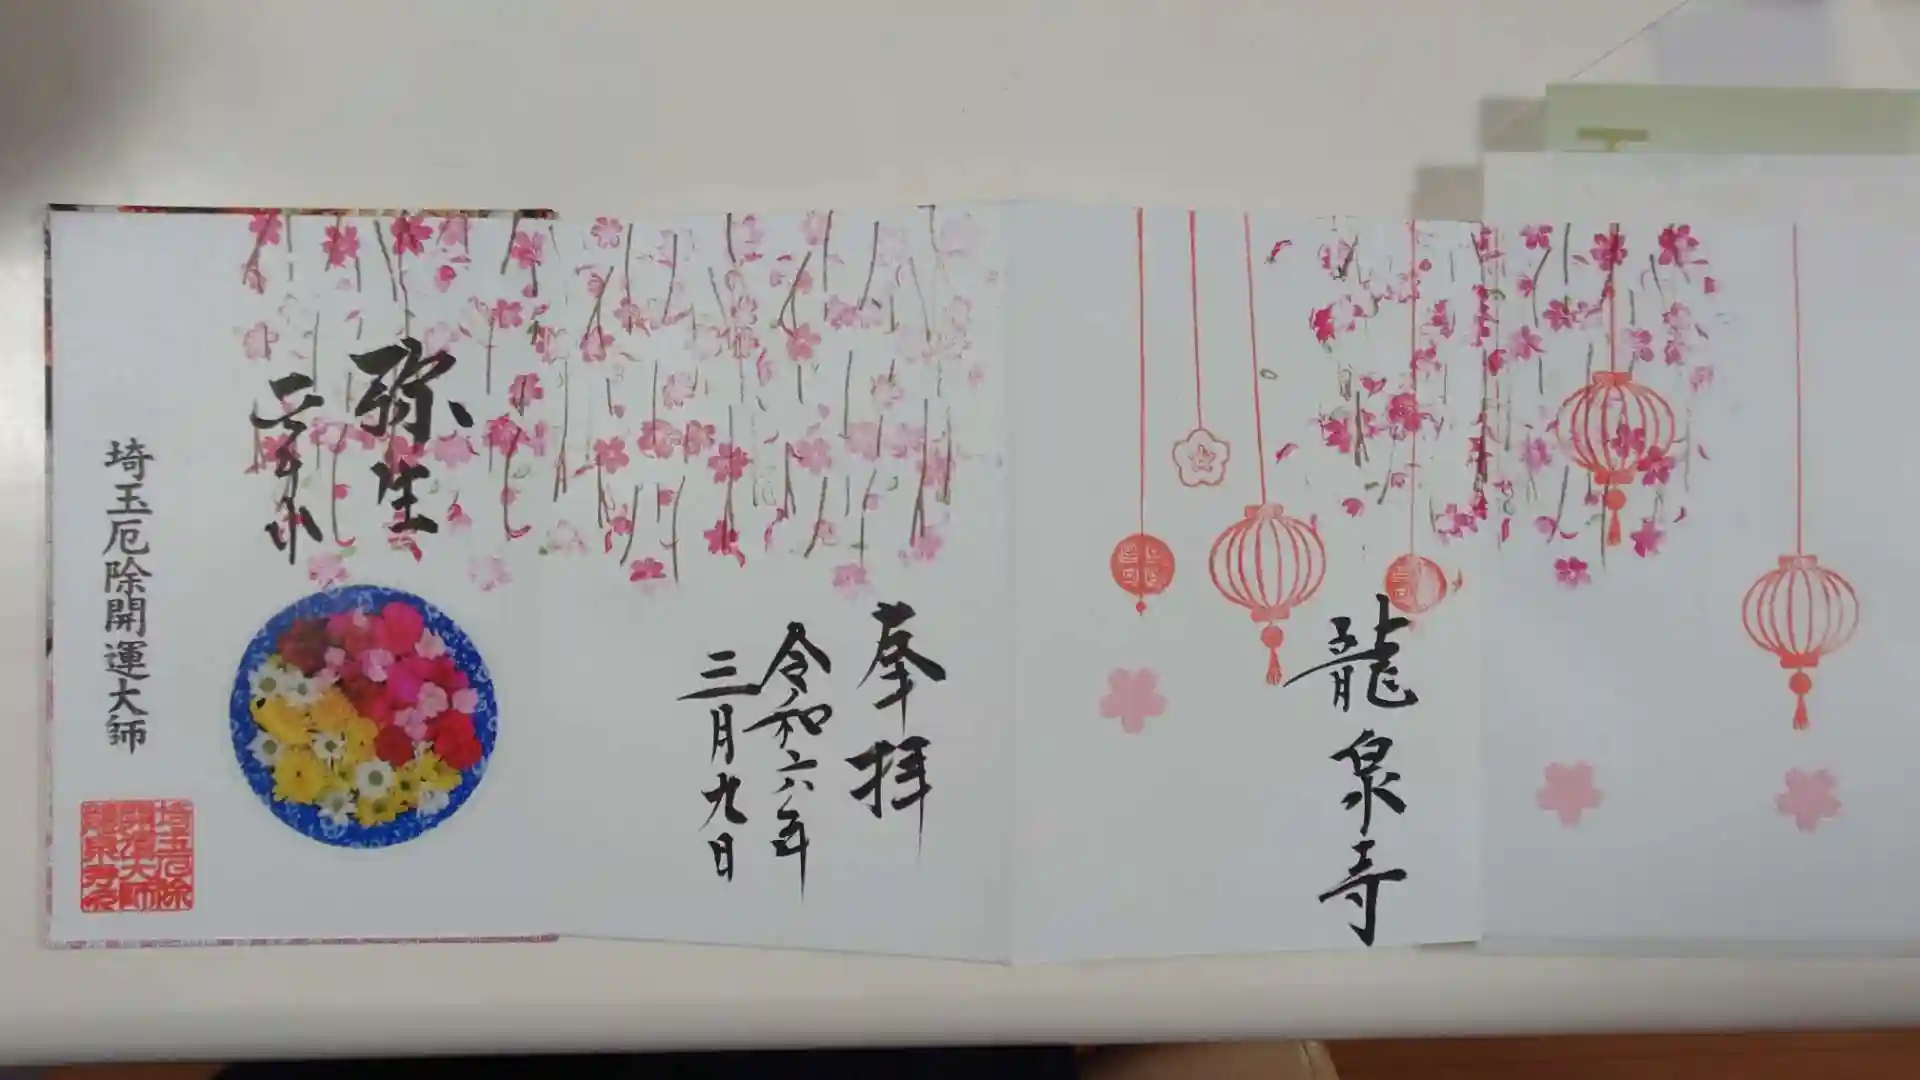 龍泉寺
奉拝
令和六年
三月九日
弥生
埼玉厄除開運大師
埼玉厄除
開運大師
龍泉寺